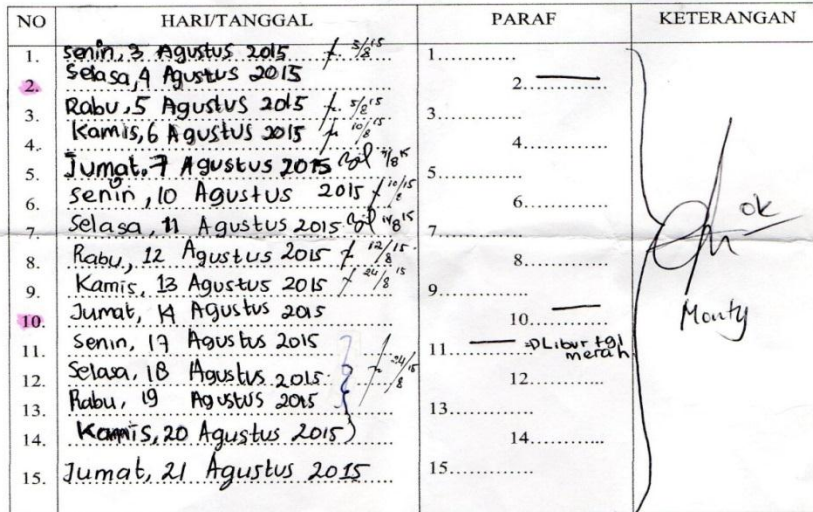 NO HARI/TANGGAL PARAF KETERANGAN
1. Senin, 3 Agustus 2015 5/8 15 1.............
2. Selasa, 4 Agustus 2015 2. —
3. Rabu, 5 Agustus 2015 5/8 15 3.............
4. Kamis, 6 Agustus 2015 10/8 15 4.............
5. Jumat, 7 Agustus 2015 5.............
6. Senin, 10 Agustus 2015 10/15 8 6.............
7. Selasa, 11 Agustus 2015 7............. ok
8. Rabu, 12 Agustus 2015 12/15 8 8.............
9. Kamis, 13 Agustus 2015 24/8 15 9.............
10. Jumat, 14 Agustus 2015 10. — Monty
11. Senin, 17 Agustus 2015 11. — => Libur tgl merah
12. Selasa, 18 Agustus 2015 24/15 8 12.............
13. Rabu, 19 Agustus 2015 13.............
14. Kamis, 20 Agustus 2015 14.............
15. Jumat, 21 Agustus 2015 15.............